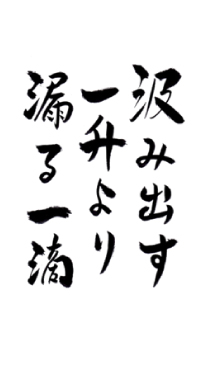 汲み出す
一升より
漏る一滴